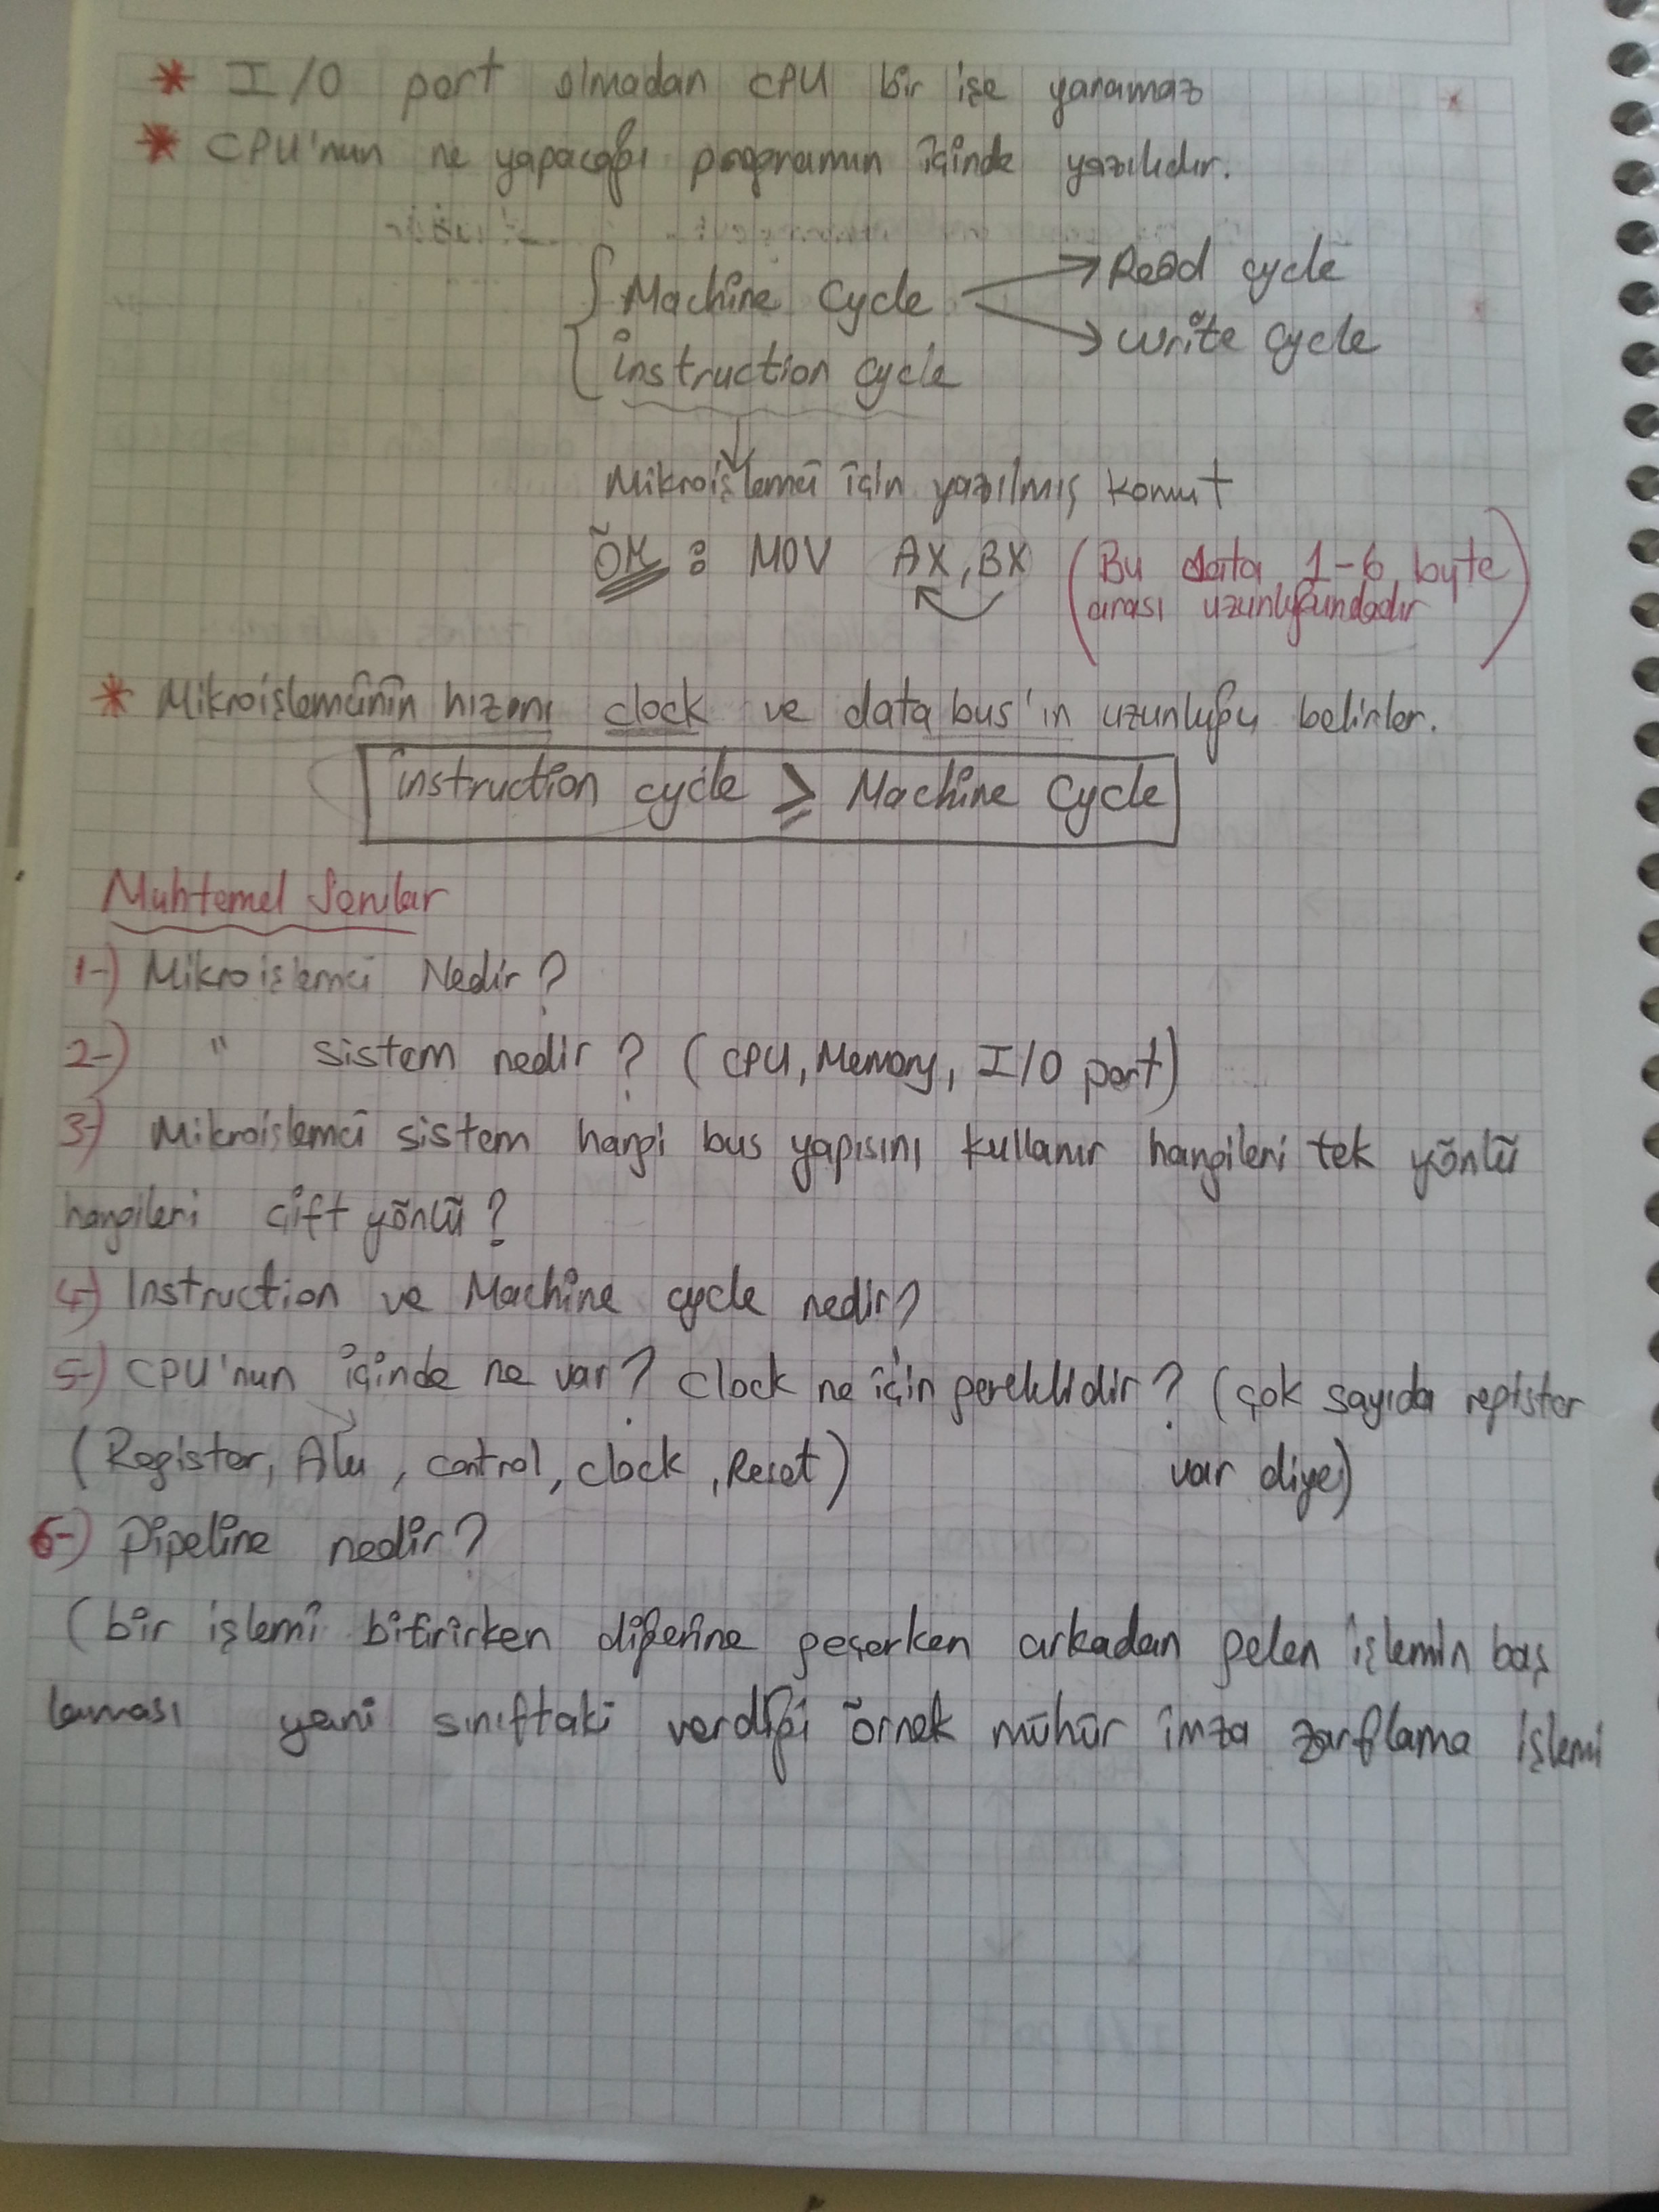 * I/O port olmadan CPU bir işe yaramaz
* CPU'nun ne yapacağı programın içinde yazılıdır.
Machine Cycle → Read cycle
→ Write cycle
instruction cycle
↓
Mikroişlemci için yazılmış komut
ÖR : MOV AX, BX (Bu data 1-6 byte
arası uzunluğundadır)
* Mikroişlemcinin hızını clock ve data bus'ın uzunluğu belirler.
instruction cycle ≥ Machine Cycle
Muhtemel Sorular
1-) Mikroişlemci Nedir?
2-) " sistem nedir? (CPU, Memory, I/O port)
3-) Mikroişlemci sistem hangi bus yapısını kullanır hangileri tek yönlü
hangileri çift yönlü?
4-) Instruction ve Machine cycle nedir?
5-) CPU'nun içinde ne var? Clock ne için gereklidir? (çok sayıda register
(Register, Alu, control, clock, Reset) var diye)
6-) Pipeline nedir?
(bir işlemi bitirirken diğerine geçerken arkadan gelen işlemin baş
laması yani sınıftaki verdiği örnek mühür imza zarflama işlemi